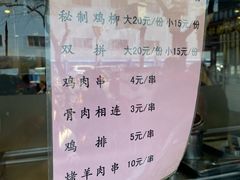 秘制鸡柳 大20元/份 小15元/份
双拼 大20元/份 小15元/份
鸡肉串 4元/串
骨肉相连 3元/串
鸡排 5元/串
烤羊肉串 10元/串